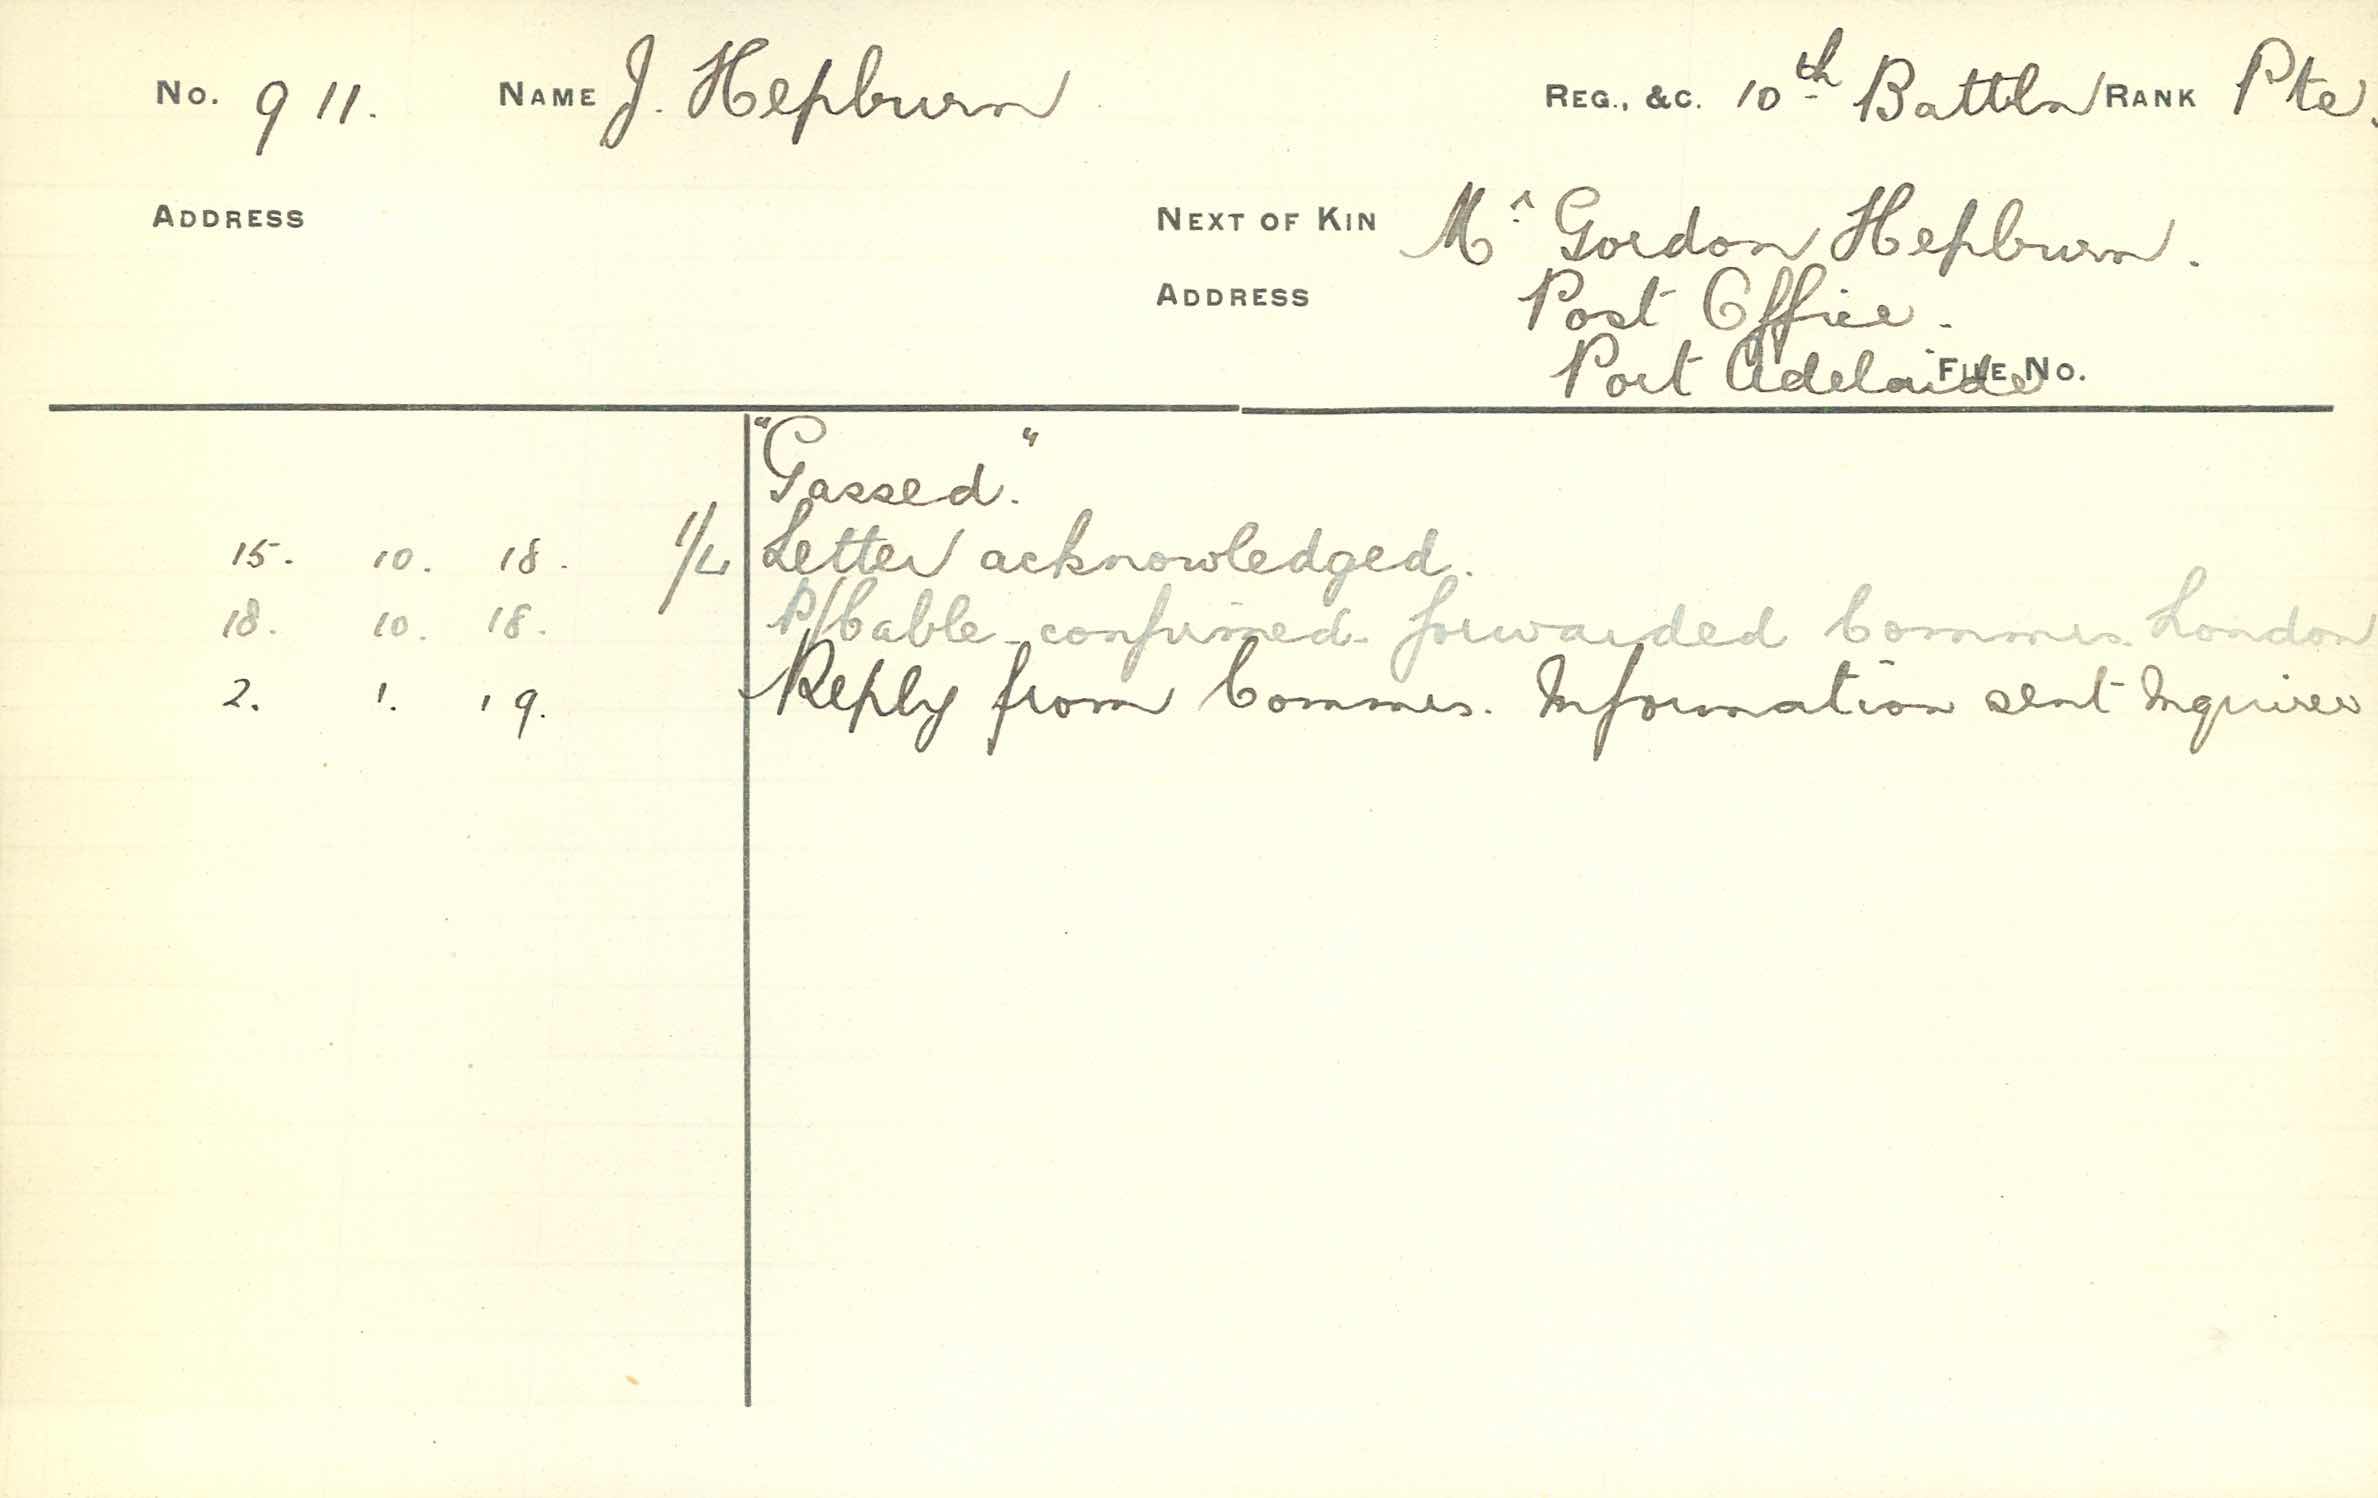 No. 911. NAME J. Hepburn REG., &C. 10th Battln RANK Pte.
ADDRESS NEXT OF KIN Mr Gordon Hepburn.
ADDRESS Post Office.
Port Adelaide FILE No.
"Gassed."
15. 10. 18. 1/L Letter acknowledged.
18. 10. 18. P/Cable confirmed forwarded Commrs. London
2. 1. 19. Reply from Commrs. Information sent Inquirer